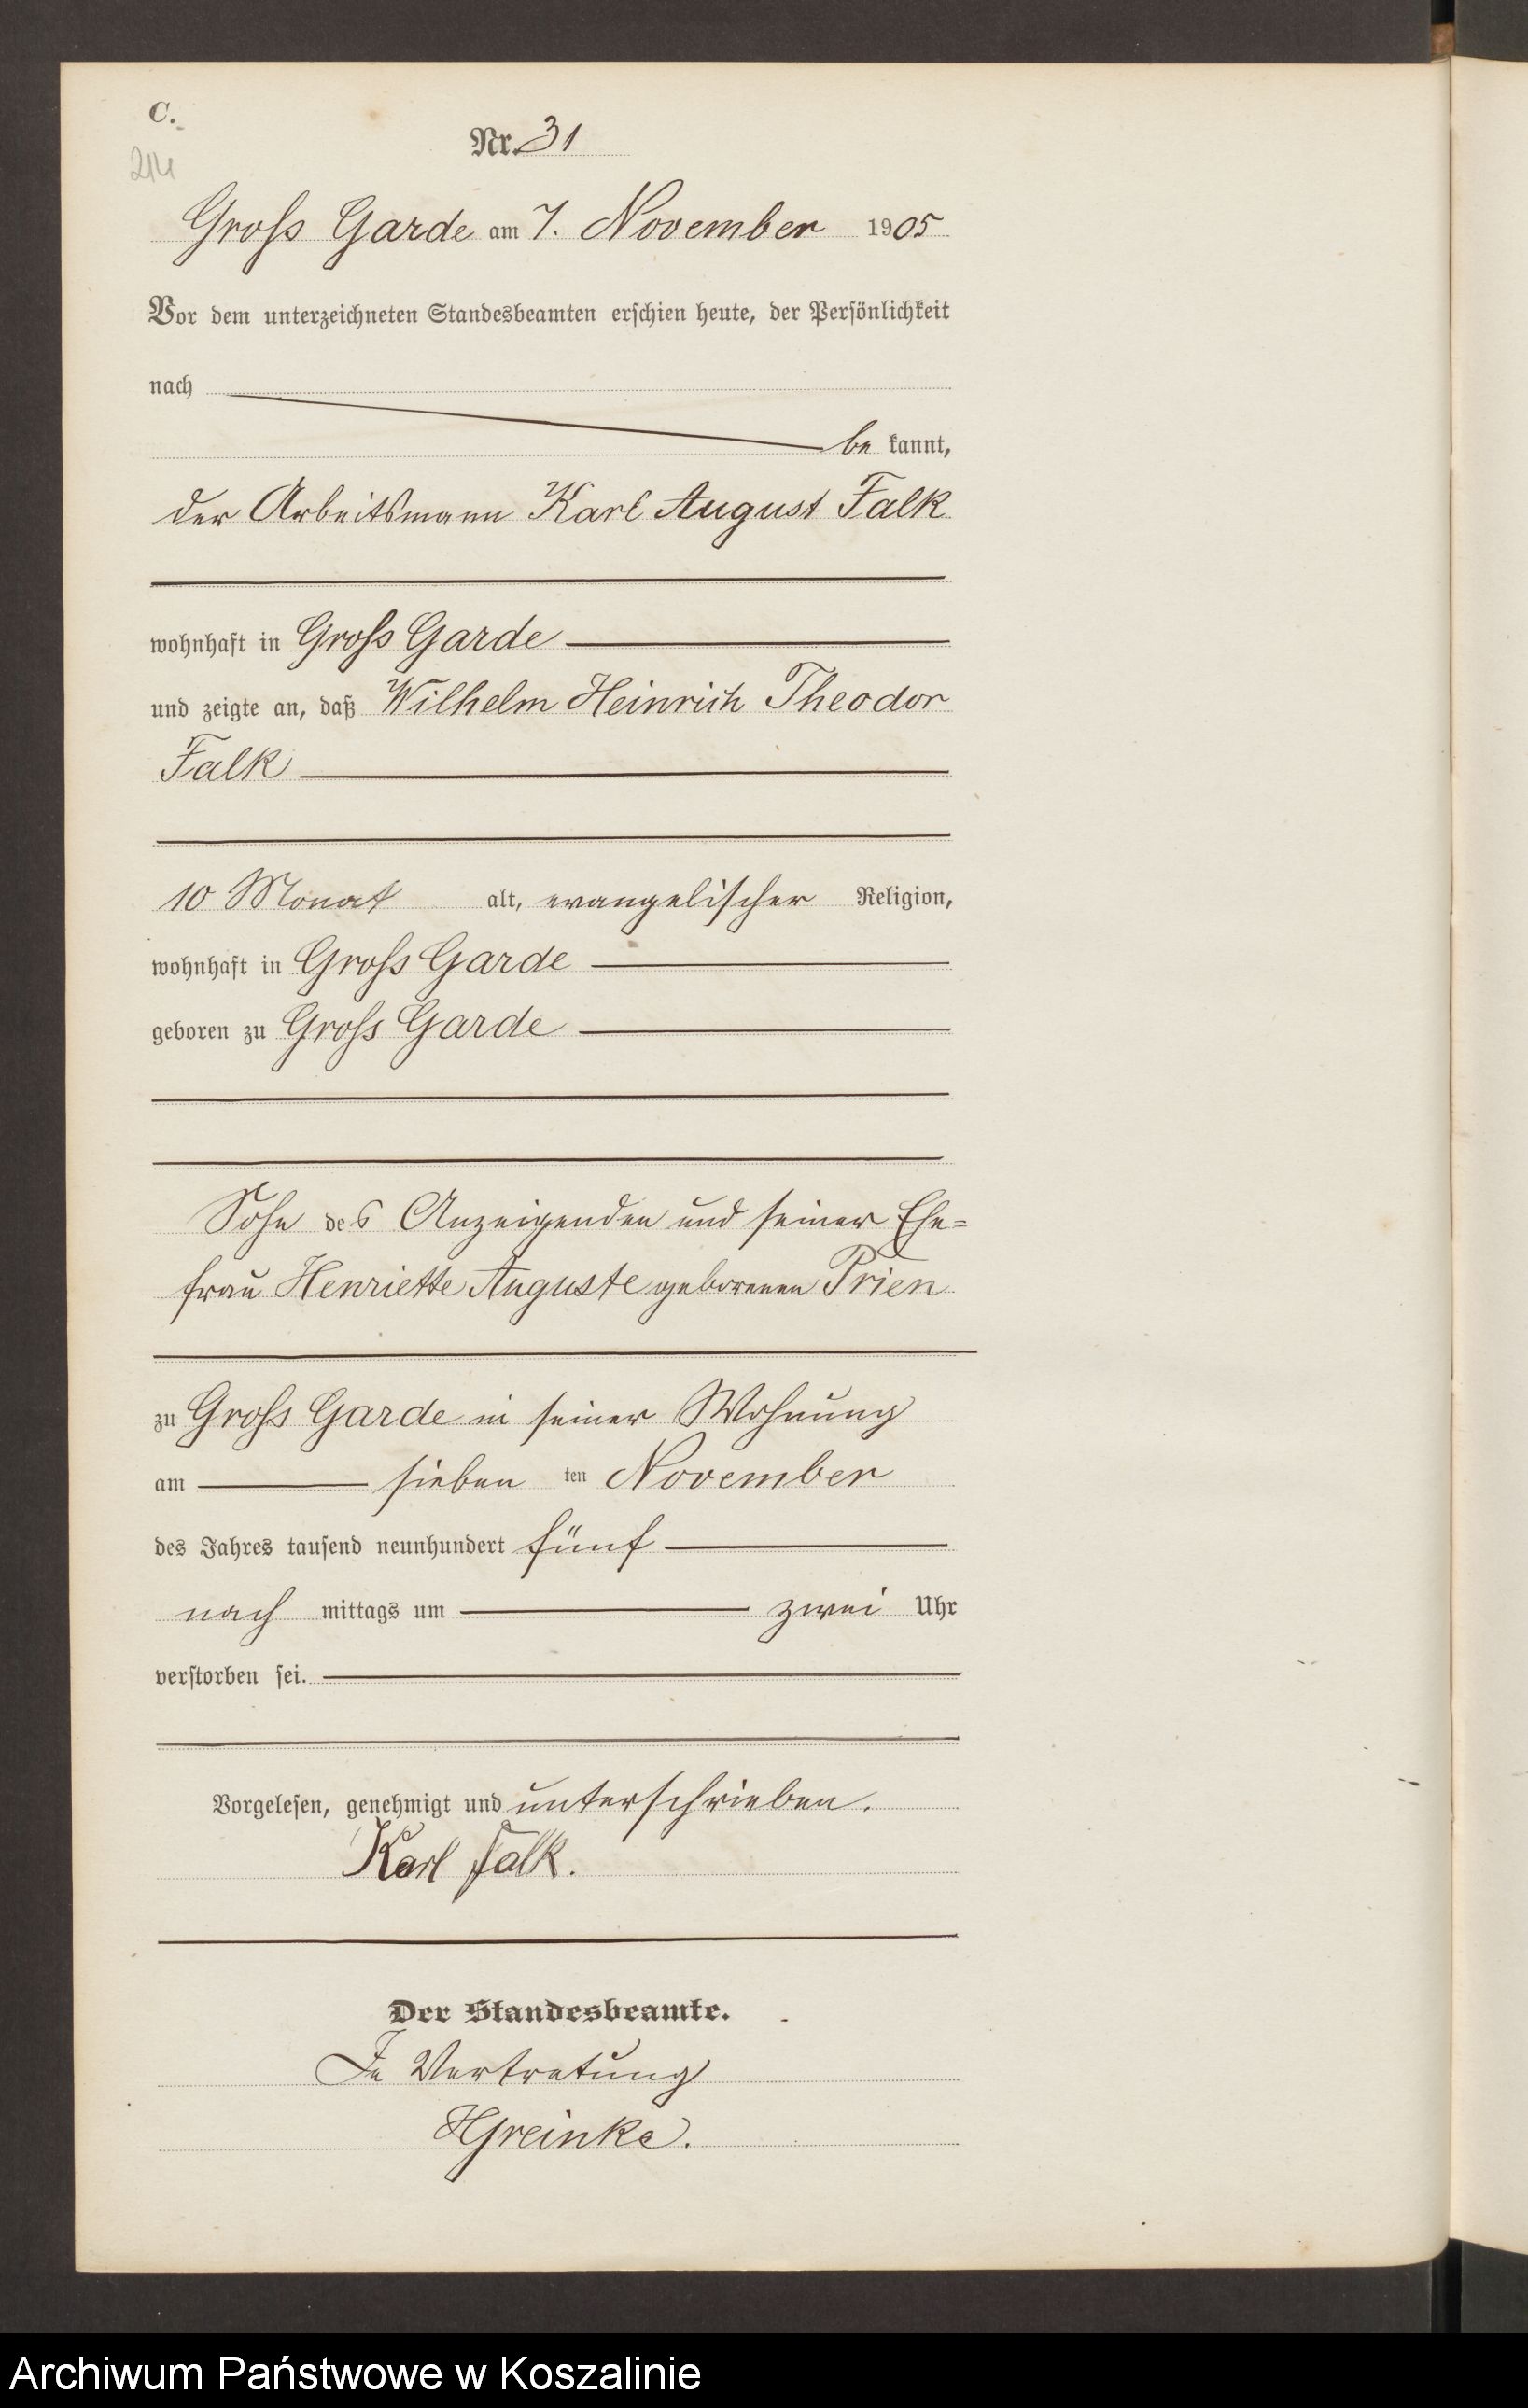 C.
214
Nr. 31
Gross Garde am 7. November 1905
Vor dem unterzeichneten Standesbeamten erschien heute, der Persönlichkeit
nach
be kannt,
der Arbeitsmann Karl August Falk
wohnhaft in Gross Garde
und zeigte an, daß Wilhelm Heinrich Theodor
Falk
10 Monat alt, evangelischer Religion,
wohnhaft in Gross Garde
geboren zu Gross Garde
Sohn des Anzeigenden und seiner Ehe=
frau Henriette Auguste geborenen Prien
zu Gross Garde in seiner Wohnung
am sieben ten November
des Jahres tausend neunhundert fünf
nach mittags um zwei Uhr
verstorben sei.
Vorgelesen, genehmigt und unterschrieben.
Karl Falk.
Der Standesbeamte.
In Vertretung
HGreinke.
Archiwum Państwowe w Koszalinie